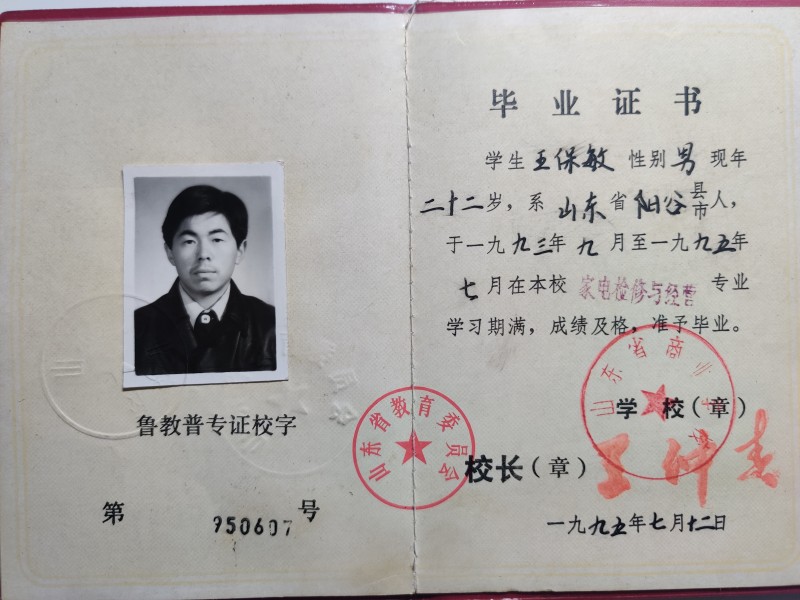 鲁教普专证校字
第 950607 号
山东省教育委员会
毕业证书
学生 王保敏 性别 男 现年
二十二岁，系 山东 省 阳谷 县市人，
于一九九三年 九 月至一九九五年
七 月在本校 家电检修与经营 专业
学习期满，成绩及格，准予毕业。
山东省商业学校
学 校（章）
校长（章）
一九九五年七月十二日